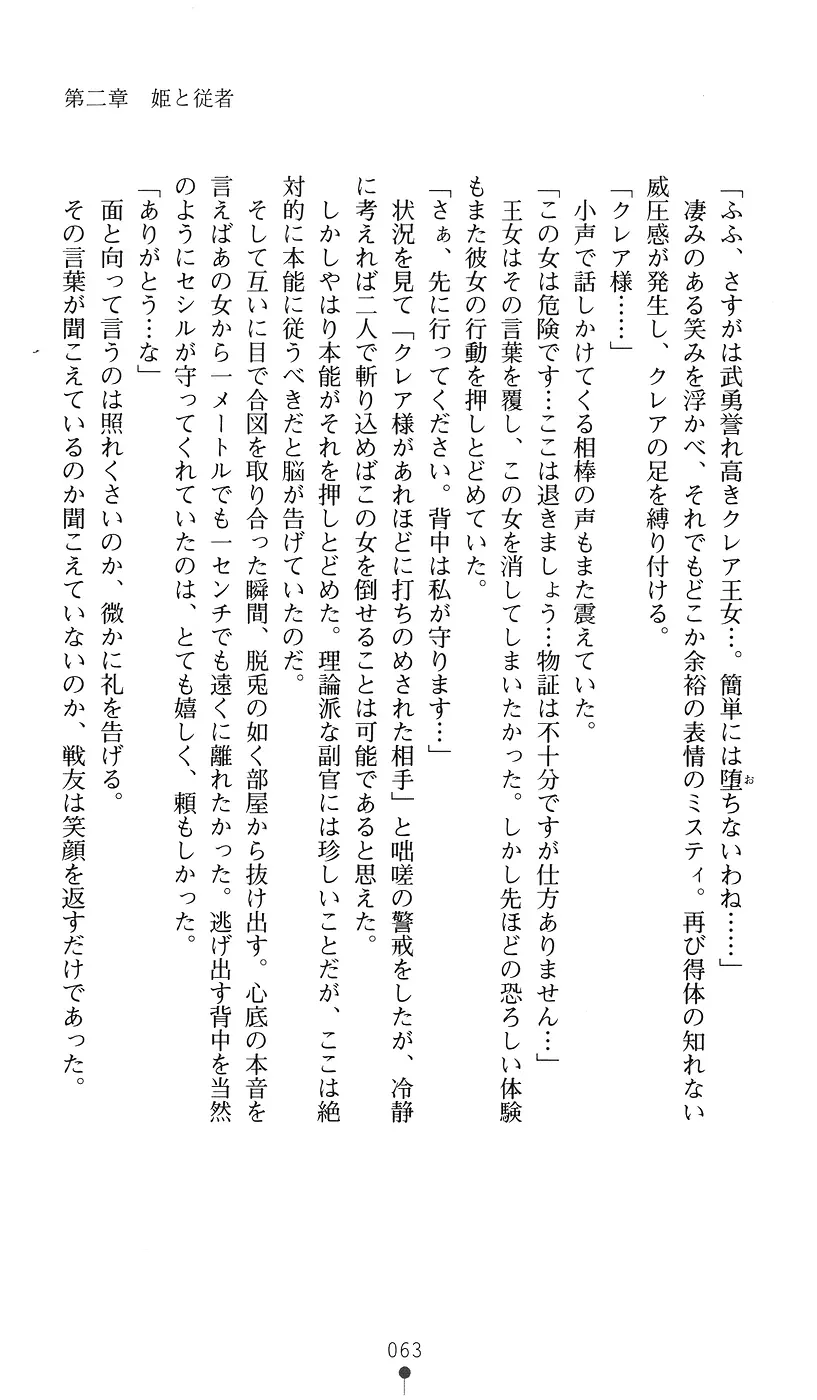 第二章　姫と従者
「ふふ、さすがは武勇誉れ高きクレア王女…。簡単には堕ちないわね……」
お
　凄みのある笑みを浮かべ、それでもどこか余裕の表情のミスティ。再び得体の知れない
威圧感が発生し、クレアの足を縛り付ける。
「クレア様……」
　小声で話しかけてくる相棒の声もまた震えていた。
「この女は危険です…ここは退きましょう…物証は不十分ですが仕方ありません…」
　王女はその言葉を覆し、この女を消してしまいたかった。しかし先ほどの恐ろしい体験
もまた彼女の行動を押しとどめていた。
「さぁ、先に行ってください。背中は私が守ります…」
　状況を見て「クレア様があれほどに打ちのめされた相手」と咄嗟の警戒をしたが、冷静
に考えれば二人で斬り込めばこの女を倒せることは可能であると思えた。
　しかしやはり本能がそれを押しとどめた。理論派な副官には珍しいことだが、ここは絶
対的に本能に従うべきだと脳が告げていたのだ。
　そして互いに目で合図を取り合った瞬間、脱兎の如く部屋から抜け出す。心底の本音を
言えばあの女から一メートルでも一センチでも遠くに離れたかった。逃げ出す背中を当然
のようにセシルが守ってくれていたのは、とても嬉しく、頼もしかった。
「ありがとう…な」
　面と向って言うのは照れくさいのか、微かに礼を告げる。
　その言葉が聞こえているのか聞こえていないのか、戦友は笑顔を返すだけであった。
063